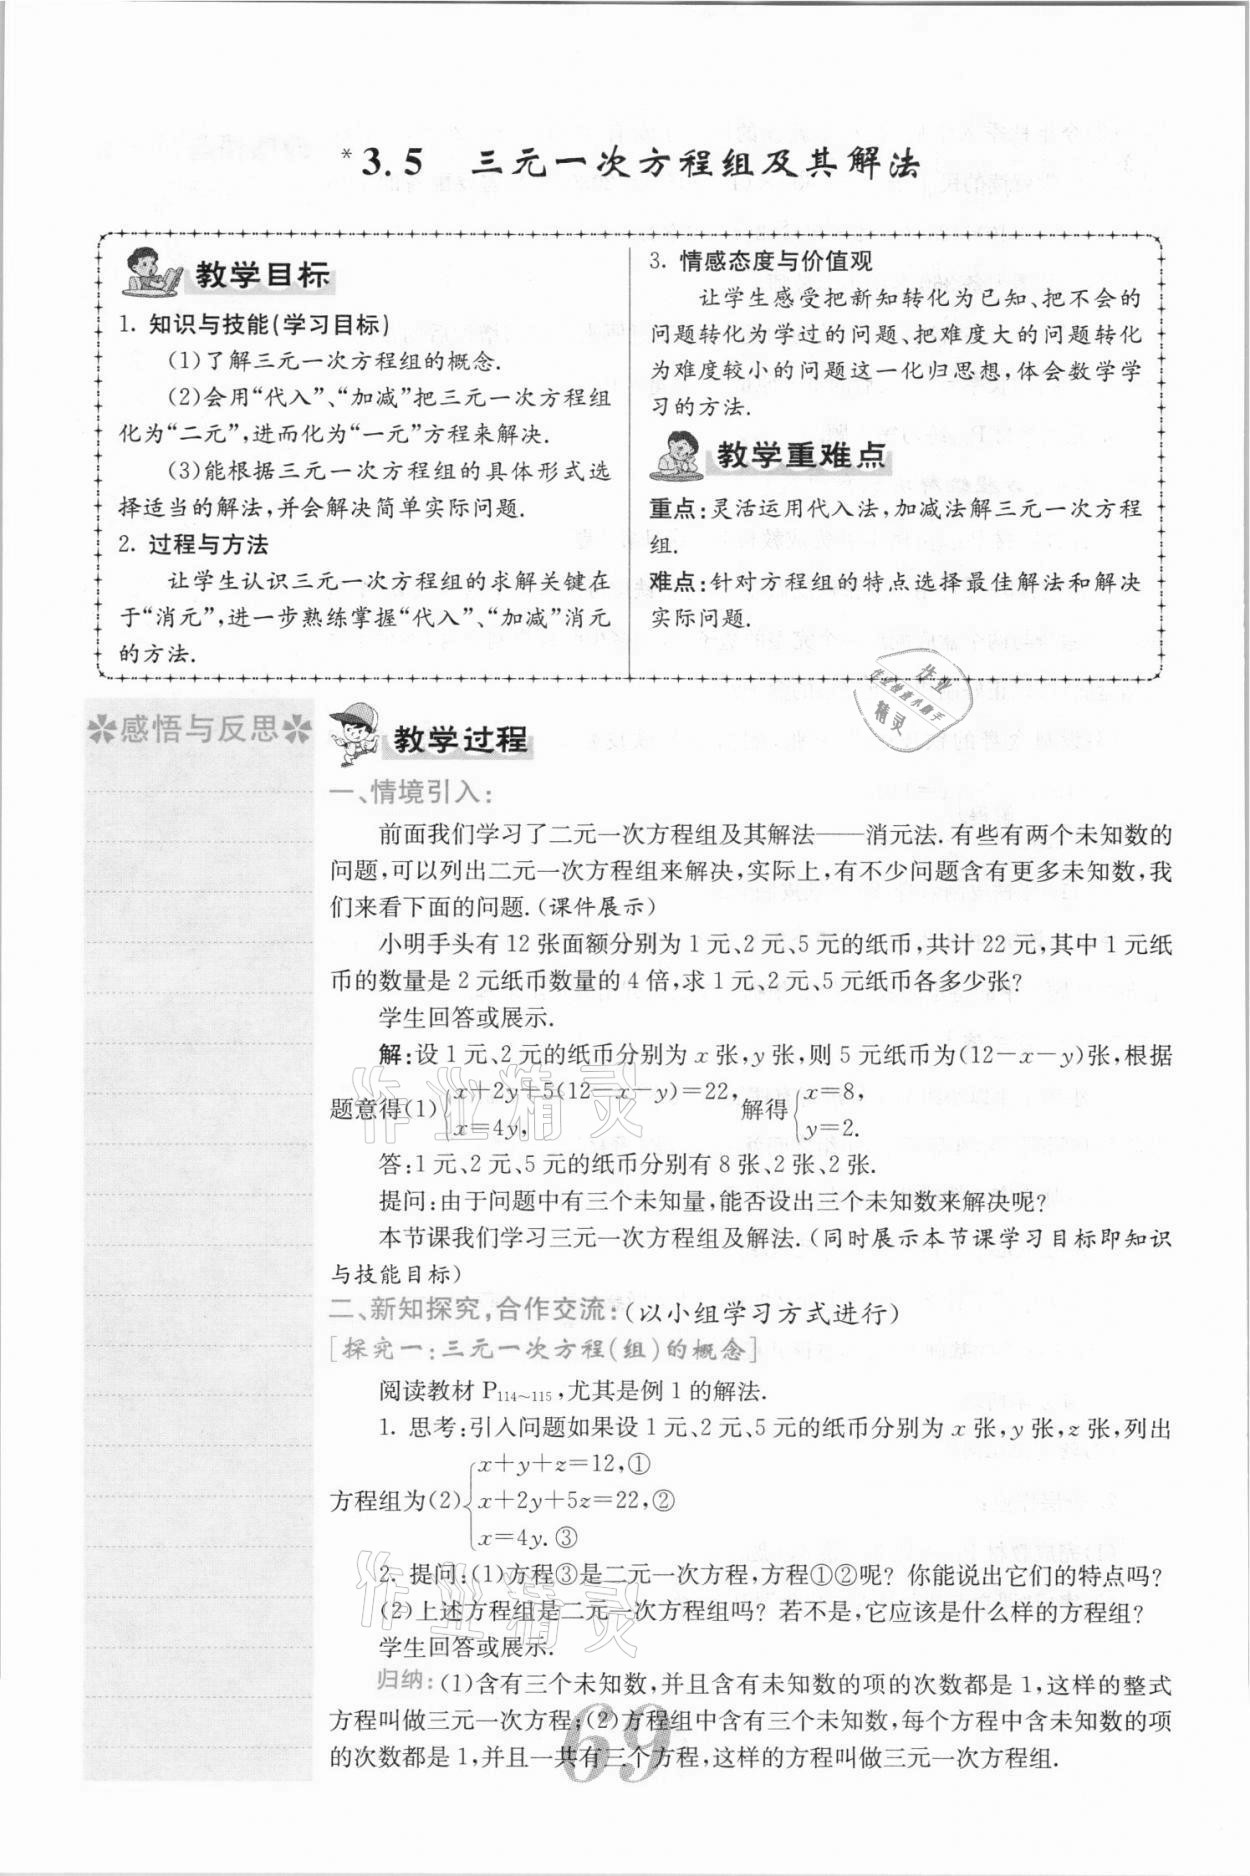 *3.5 三元一次方程组及其解法
教学目标
1. 知识与技能(学习目标)
(1)了解三元一次方程组的概念.
(2)会用“代入”、“加减”把三元一次方程组
化为“二元”,进而化为“一元”方程来解决.
(3)能根据三元一次方程组的具体形式选
择适当的解法,并会解决简单实际问题.
2. 过程与方法
让学生认识三元一次方程组的求解关键在
于“消元”,进一步熟练掌握“代入”、“加减”消元
的方法.
3. 情感态度与价值观
让学生感受把新知转化为已知、把不会的
问题转化为学过的问题、把难度大的问题转化
为难度较小的问题这一化归思想,体会数学学
习的方法.
教学重难点
重点:灵活运用代入法,加减法解三元一次方程
组.
难点:针对方程组的特点选择最佳解法和解决
实际问题.
作业
作业检查小助手
精灵
感悟与反思
教学过程
一、情境引入:
前面我们学习了二元一次方程组及其解法——消元法.有些有两个未知数的
问题,可以列出二元一次方程组来解决,实际上,有不少问题含有更多未知数,我
们来看下面的问题.(课件展示)
小明手头有12张面额分别为1元、2元、5元的纸币,共计22元,其中1元纸
币的数量是2元纸币数量的4倍,求1元、2元、5元纸币各多少张?
学生回答或展示.
解:设1元、2元的纸币分别为x张,y张,则5元纸币为(12-x-y)张,根据
题意得(1){x+2y+5(12-x-y)=22, x=4y, 解得{x=8, y=2.
答:1元、2元、5元的纸币分别有8张、2张、2张.
提问:由于问题中有三个未知量,能否设出三个未知数来解决呢?
本节课我们学习三元一次方程组及解法.(同时展示本节课学习目标即知识
与技能目标)
二、新知探究,合作交流:(以小组学习方式进行)
[探究一:三元一次方程(组)的概念]
阅读教材P114~115,尤其是例1的解法.
1. 思考:引入问题如果设1元、2元、5元的纸币分别为x张,y张,z张,列出
x+y+z=12,①
方程组为(2){x+2y+5z=22,②
x=4y.③
2. 提问:(1)方程③是二元一次方程,方程①②呢? 你能说出它们的特点吗?
(2)上述方程组是二元一次方程组吗? 若不是,它应该是什么样的方程组?
学生回答或展示.
归纳:(1)含有三个未知数,并且含有未知数的项的次数都是1,这样的整式
方程叫做三元一次方程;(2)方程组中含有三个未知数,每个方程中含未知数的项
的次数都是1,并且一共有三个方程,这样的方程叫做三元一次方程组.
69
作业精灵
作业精灵